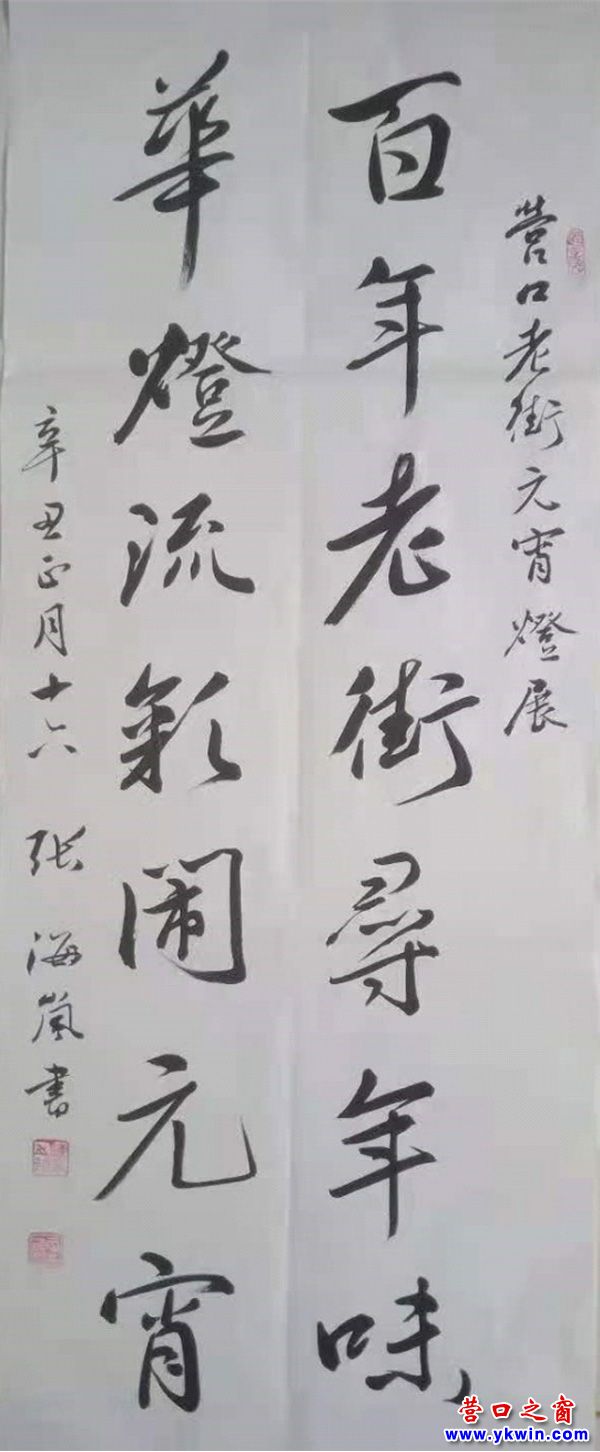 營口老街元宵燈展
百年老街尋年味
華燈流彩鬧元宵
辛丑正月十六 张海嵐書
营口之窗
www.ykwin.com